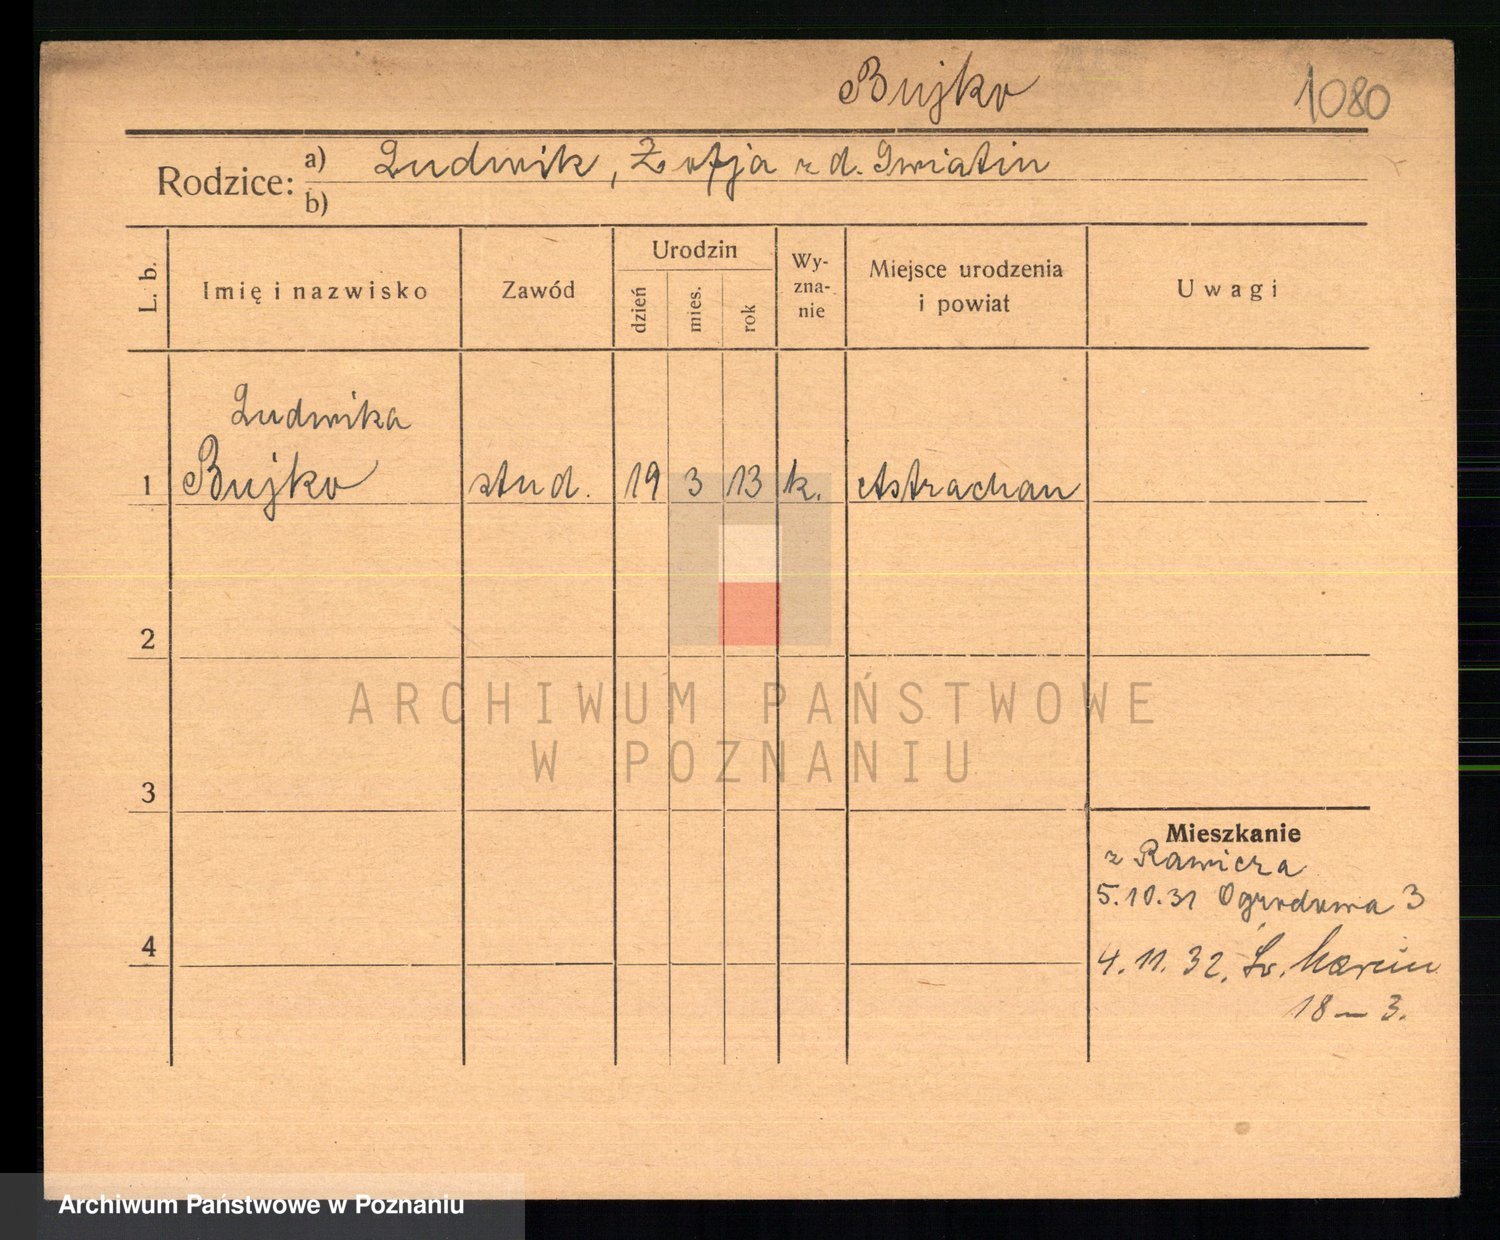 Bujko 1080
Rodzice: a) Ludwik, Zofja z d. Gwiatin
b)
L. b. Imię i nazwisko Zawód Urodzin dzień mies. rok Wy-zna-nie Miejsce urodzenia i powiat Uwagi
Ludwika
1 Bujko stud. 19 3 13 k. Astrachan
2
ARCHIWUM PAŃSTWOWE
W POZNANIU
3
Mieszkanie
z Rawicza
5.10.31 Ogrodowa 3
4
4.11.32. Św. Marcin
18 — 3.
Archiwum Państwowe w Poznaniu